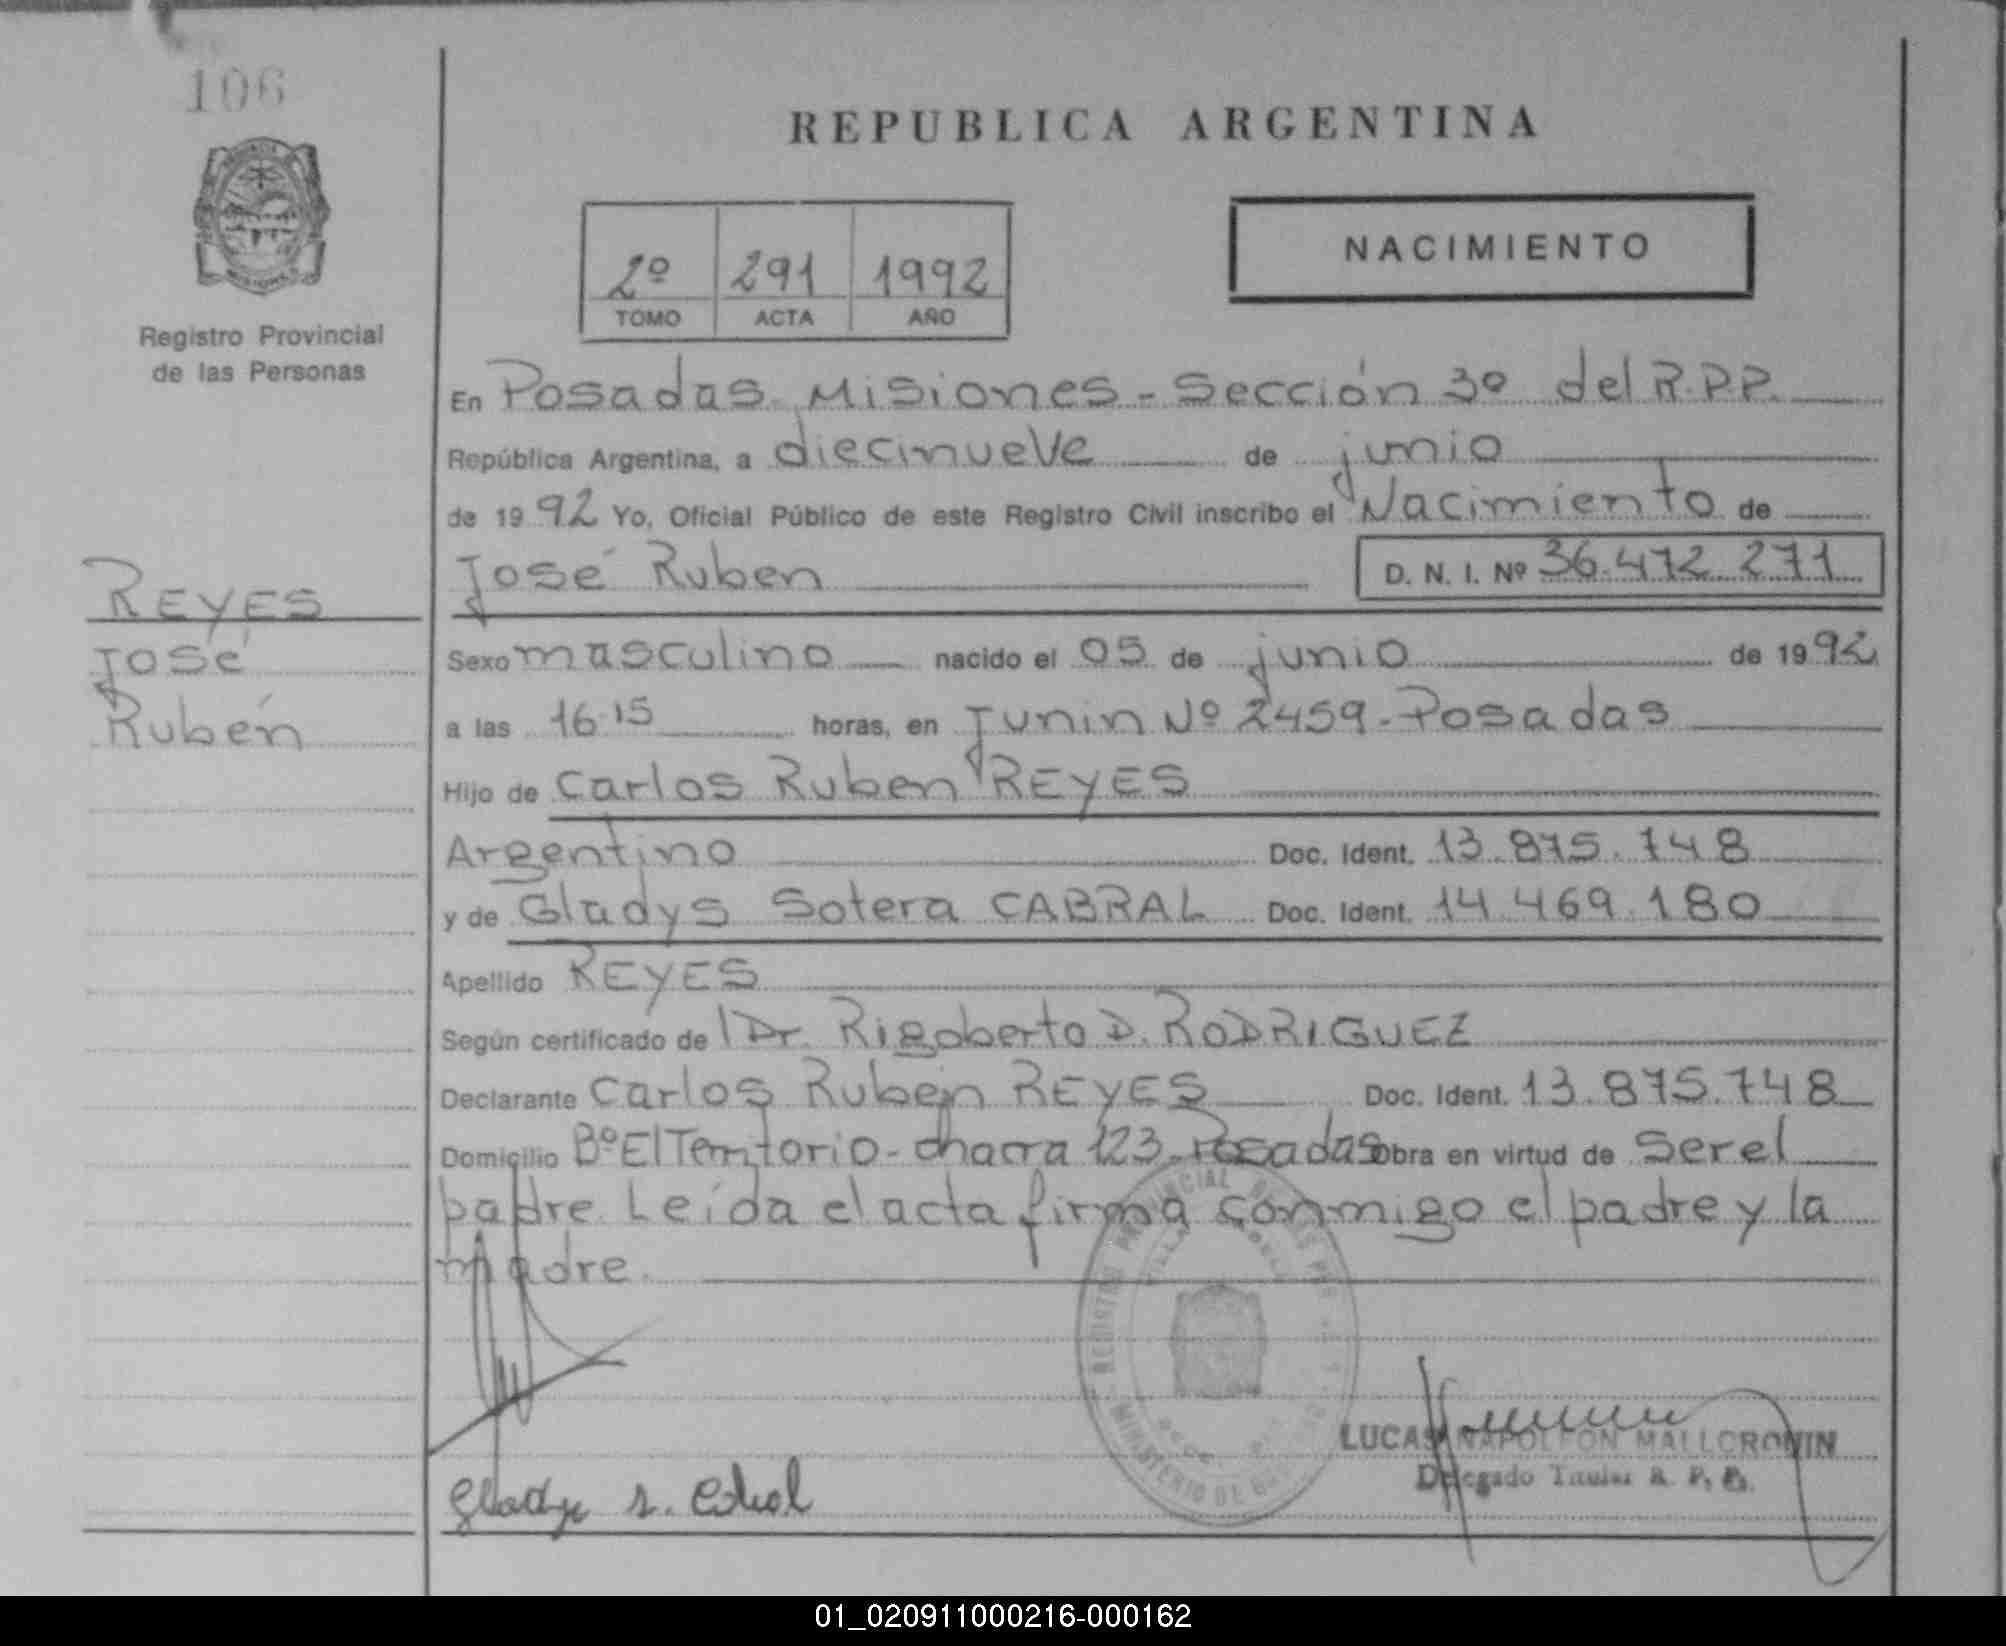 106
REPUBLICA ARGENTINA
NACIMIENTO
2º 291 1992
TOMO ACTA AÑO
Registro Provincial
de las Personas
En Posadas. Misiones - Sección 3º del R.P.P.
República Argentina, a diecinueve de junio
de 1992 Yo, Oficial Público de este Registro Civil inscribo el Nacimiento de
José Ruben D. N. I. Nº 36.472.271
REYES
José
Rubén
Sexo masculino nacido el 05 de junio de 1992
a las 16.15 horas, en Junin Nº 2459 - Posadas
Hijo de Carlos Ruben REYES
Argentino Doc. Ident. 13.875.748
y de Gladys Sotera CABRAL Doc. Ident. 14.469.180
Apellido REYES
Según certificado de l Dr. Rigoberto D. RODRIGUEZ
Declarante Carlos Ruben REYES Doc. Ident. 13.875.748
Domicilio Bº El Territorio - chacra 123 - Posadas obra en virtud de ser el
padre. Leída el acta firma conmigo el padre y la
madre.
REGISTRO PROVINCIAL DE LAS
MINISTERIO DE
LUCAS NAPOLEON MALLCROUIN
Delegado Titular R. P. P.
Gladys S. Cabral
01_020911000216-000162